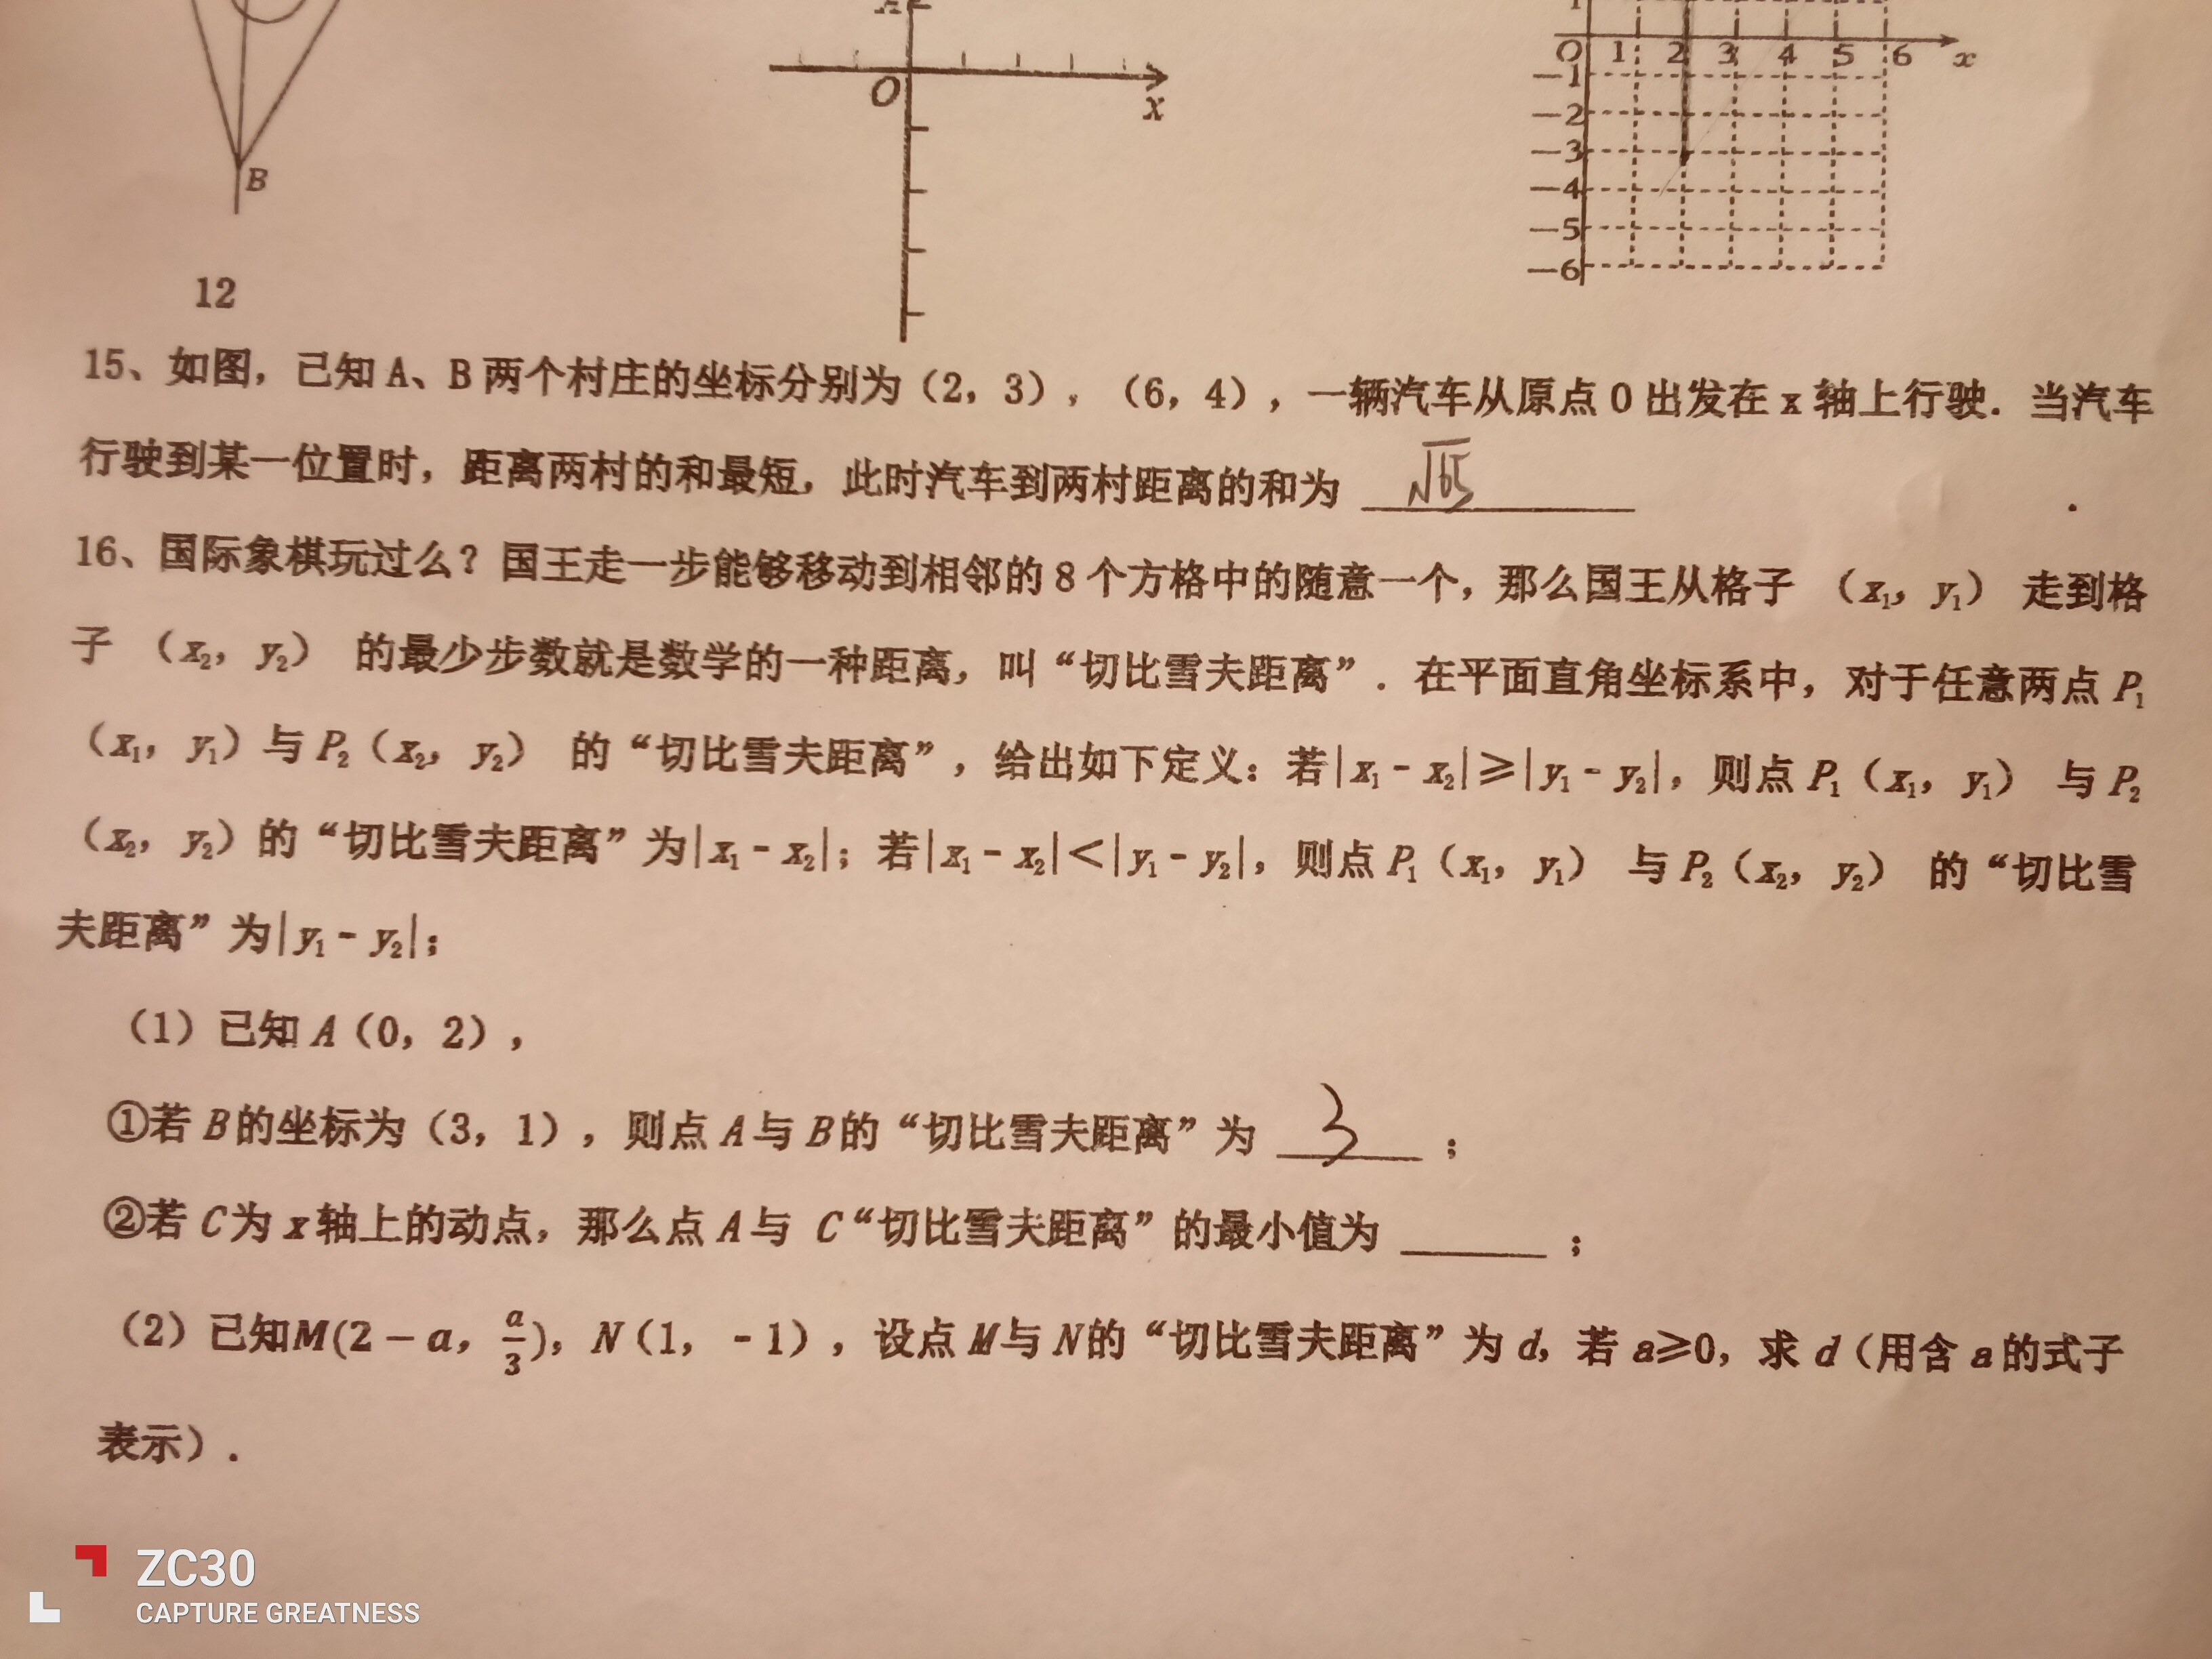 A
1
O
x
O 1 2 3 4 5 6 x
-1
-2
-3
-4
-5
-6
B
12
15、如图，已知 A、B 两个村庄的坐标分别为（2，3），（6，4），一辆汽车从原点 O 出发在 x 轴上行驶．当汽车
行驶到某一位置时，距离两村的和最短，此时汽车到两村距离的和为 √65 .
16、国际象棋玩过么？国王走一步能够移动到相邻的 8 个方格中的随意一个，那么国王从格子 （x₁，y₁） 走到格
子 （x₂，y₂） 的最少步数就是数学的一种距离，叫“切比雪夫距离”．在平面直角坐标系中，对于任意两点 P₁
（x₁，y₁）与 P₂（x₂，y₂） 的“切比雪夫距离”，给出如下定义：若|x₁﹣x₂|≥|y₁﹣y₂|，则点 P₁（x₁，y₁） 与 P₂
（x₂，y₂）的“切比雪夫距离”为|x₁﹣x₂|；若|x₁﹣x₂|＜|y₁﹣y₂|，则点 P₁（x₁，y₁） 与 P₂（x₂，y₂） 的“切比雪
夫距离”为|y₁﹣y₂|；
（1）已知 A（0，2），
①若 B 的坐标为（3，1），则点 A 与 B 的“切比雪夫距离”为 3 ；
②若 C 为 x 轴上的动点，那么点 A 与 C“切比雪夫距离”的最小值为 ______ ；
（2）已知M(2－a，a/3)，N（1，﹣1），设点 M 与 N 的“切比雪夫距离”为 d，若 a≥0，求 d（用含 a 的式子
表示）.
ZC30
CAPTURE GREATNESS